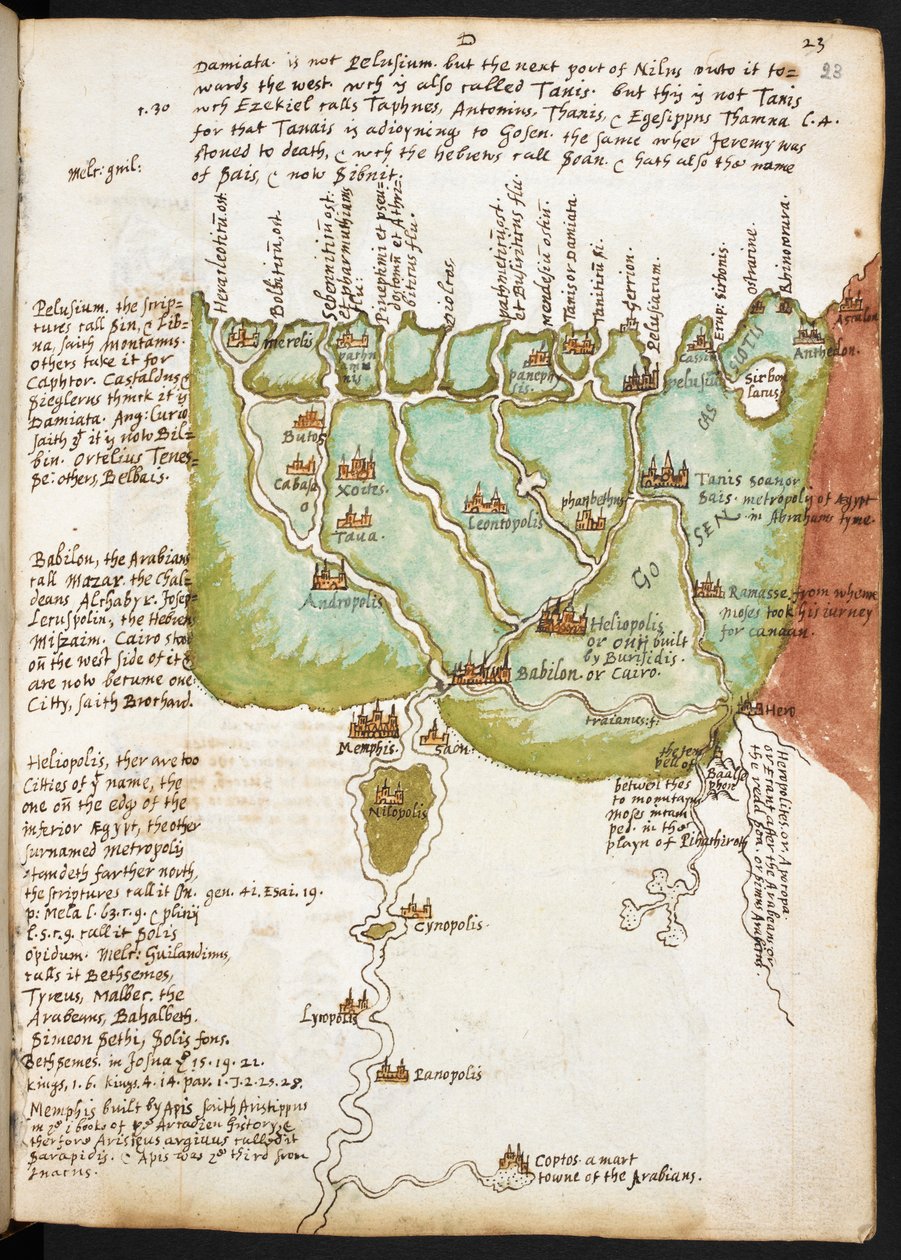 D
23
23
Damiata. is not Pelusium. but the next port of Nilus vnto it to=
wards the west. wch is also called Tanis. but this is not Tanis
c. 30
wch Ezekiel calls Taphnes, Antonius, Thanis, & Egesippus Thamna l. 4.
for that Tanais is adioyning to Gosen. the same wher Jeremy was
stoned to death, & wch the hebrews call Soan. & hath also the name
Melc: guil:
of Sais, & now Sibnit.
Heracleoticū ost.
Bolbiticū, ost.
Sebeniticū ost:
et pharmuthiacus
flu:
Pineptimi et pseu=
dostomū et Athri=
biticus flu.
Diolcos.
pathmeticū ost.
et Busiriticus flu.
mendesiū ostiū.
Tanis or Damiata.
Taniticū fi.
Gerrion.
Pelusiacum.
Erup: Sirbonis.
ostracine.
Rhinocorura.
Ascalon
Anthedon.
Cassiū
pelusiū
Sirbon
lacus
CASSIOTIS
merelis
pathn
nis
paneph
sis.
Butos
Cabasa
Xoites.
Taua.
Leontopolis
phanbethus
Andropolis
Tanis Soan or
Sais. metropolis of Ægypt
in Abrahams tyme.
GOSEN
Ramasse from whence
Moses took his iurney
for canaan.
Heliopolis
or Onii built
by Burisidis.
Babilon. or Cairo.
traianus: f:
Hero
Memphis.
Saon.
Nilopolis
the tem
pell of
Baalse
phon
betwen thes
to mountayns
Moses incam
ped. in the
playn of Pihathiroth
Heropolites or Aporopa.
or Erant after the Arabeans, or
the read sea. or sinus Arabicus.
Cynopolis.
Lycopolis
Panopolis
Coptos. a mart
towne of the Arabians.
Pelusium. the scrip=
tures call Sin, & Lib=
na, saith Montanus.
others take it for
Caphtor. Castaldus &
Sieglerus think it is
Damiata. Ang: Curio
saith yt it is now Bil=
bin. Ortelius Tenes=
se: others, Belbais.
Babilon, the Arabians
call Mazar. the Chal=
deans Alchabyr. Josep=
Letuspolin, the Hebrews
Miszaim. Cairo stood
on the west side of it &
are now become one
Citty, saith Brochard.
Heliopolis, ther are too
Citties of ye name, the
one on the edg of the
inferior Ægypt, the other
surnamed Metropolis
standeth farther north,
the scriptures call it On. gen. 41. Esai. 19.
p: Mela l. 63. c. 9. & pliny
l. 5. c. 9. call it Solis
opidum. Melc: Guilandinus,
calls it Bethsemes,
Tyreus, Malbec. the
Arabeans, Bahalbeth.
Simeon Sethi, Solis fons.
Bethsemes. in Josua 15. 19. 21.
kings, 1. 6. kings. 4. 14. par. 1. J. 2. 25. 28.
Memphis built by Apis saith Aristippus
in ye i booke of ye Arcadien history, &
therfore Arisieus argiuus called it
Sarapidis. & Apis was ye third from
Inacus.